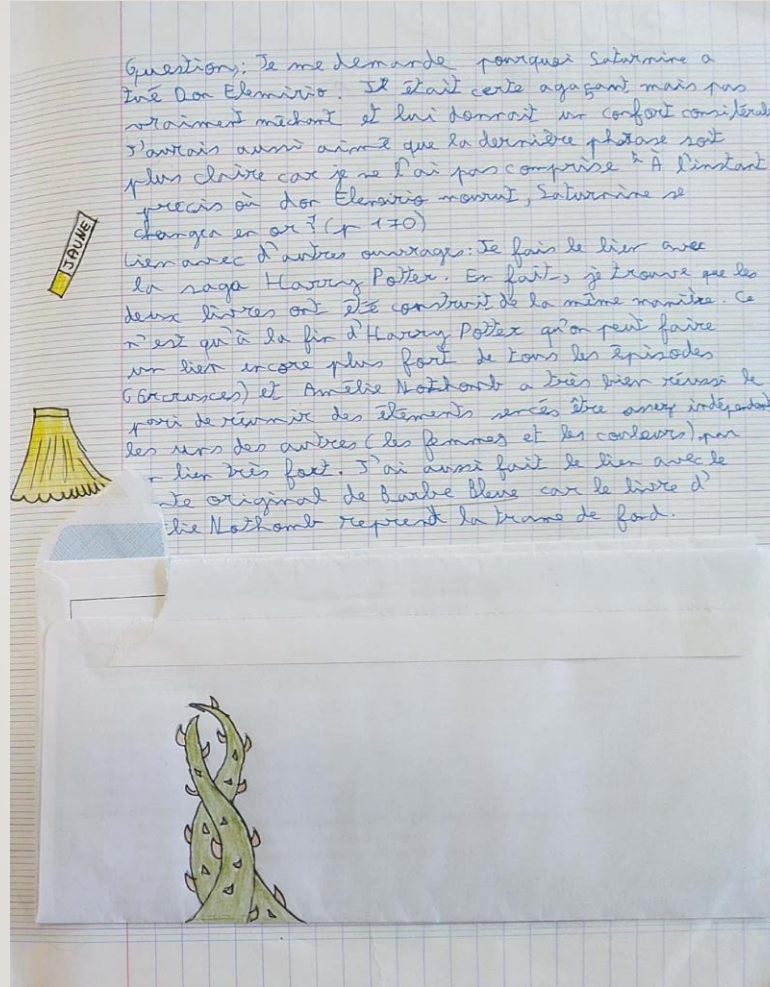 Question: Je me demande pourquoi Saturnine a
tué Don Elemirio. Il était certe agaçant mais pas
vraiment méchant et lui donnait un confort considérab
J'aurais aussi aimé que la dernière phrase soit
plus claire car je ne l'ai pas comprise "À l'instant
précis où don Elemirio mourut, Saturnine se
changea en or" (p 170)
JAUNE
Lien avec d'autres ouvrages: Je fais le lien avec
la saga Harry Potter. En fait, je trouve que les
deux livres ont été construit de la même manière. Ce
n'est qu'à la fin d'Harry Potter qu'on peut faire
un lien encore plus fort de tous les épisodes
et Amélie Nothomb a très bien réussi le
pari de réunir des élements sencés être assez indépendant
les uns des autres (les femmes et les couleurs), par
n lien très fort. J'ai aussi fait le lien avec le
nte original de Barbe Bleue car le livre d'
élie Nothomb reprend la trame de fond.